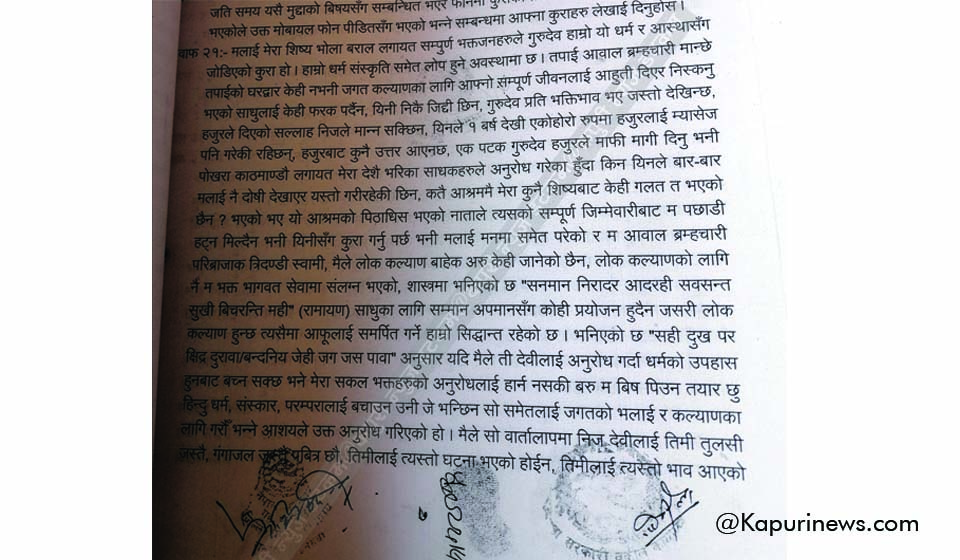 जति समय यसै मुद्दाको बिषयसँग सम्बन्धित भएर फोनमा
भएकोले उक्त मोबायल फोन पीडितसँग भएको भन्ने सम्बन्धमा आफ्ना कुराहरु लेखाई दिनुहोस ।
२१:- मलाई मेरा शिष्य भोला बराल लगायत सम्पुर्ण भक्तजनहरुले गुरुदेव हाम्रो यो धर्म र आस्थासँग
जोडिएको कुरा हो। हाम्रो धर्म संस्कृति समेत लोप हुने अवस्थामा छ । तपाई आवाल ब्रम्हचारी मान्छे
तपाईको घरद्वार केही नभनी जगत कल्याणका लागि आफ्नो सम्पूर्ण जीवनलाई आहुती दिएर निस्कनु
भएको साधुलाई केही फरक पर्दैन, यिनी निकै जिद्दी छिन, गुरुदेव प्रति भक्तिभाव भए जस्तो देखिन्छ,
हजुरले दिएको सल्लाह निजले मान्न सक्छिन, यिनले १ बर्ष देखी एकोहोरो रुपमा हजुरलाई म्यासेज
पनि गरेकी रहिछन्, हजुरबाट कुनै उत्तर आएनछ, एक पटक गुरुदेव हजुरले माफी मागी दिनु भनी
पोखरा काठमाण्डौ लगायत मेरा देशै भरिका साधकहरुले अनुरोध गरेका हुँदा किन यिनले बार-बार
मलाई नै दोषी देखाएर यस्तो गरीरहेकी छिन, कतै आश्रममै मेरा कुनै शिष्यबाट केही गलत त भएको
छैन ? भएको भए यो आश्रमको पिठाधिस भएको नाताले त्यसको सम्पूर्ण जिम्मेवारीबाट म पछाडी
हट्न मिल्दैन भनी यिनीसँग कुरा गर्नु पर्छ भनी मलाई मनमा समेत परेको र म आवाल ब्रम्हचारी
परिब्राजाक त्रिदण्डी स्वामी, मैले लोक कल्याण बाहेक अरु केही जानेको छैन, लोक कल्याणको लागि
नै म भक्त भागवत सेवामा संलग्न भएको, शास्त्रमा भनिएको छ "सनमान निरादर आदरही सवसन्त
सुखी बिचरन्ति मही" (रामायण) साधुका लागि सम्मान अपमानसँग कोही प्रयोजन हुदैन जसरी लोक
कल्याण हुन्छ त्यसैमा आफूलाई समर्पित गर्ने हाम्रो सिद्धान्त रहेको छ । भनिएको छ "सही दुख पर
क्षिद्र दुरावा/बन्दनिय जेही जग जस पावा" अनुसार यदि मैले ती देवीलाई अनुरोध गर्दा धर्मको उपहास
हुनबाट बच्न सक्छ भने मेरा सकल भक्तहरुको अनुरोधलाई हार्न नसकी बरु म बिष पिउन तयार छु
हिन्दु धर्म, संस्कार, परम्परालाई बचाउन उनी जे भन्छिन सो समेतलाई जगतको भलाई र कल्याणका
लागि गरौँ भन्ने आशयले उक्त अनुरोध गरिएको हो। मैले सो वार्तालापमा निज देवीलाई तिमी तुलसी
जस्तै, गंगाजल जस्तै पबित्र छौ, तिमीलाई त्यस्तो घटना भएको होईन, तिमीलाई त्यस्तो भाव आएको
@Kapurinews.com